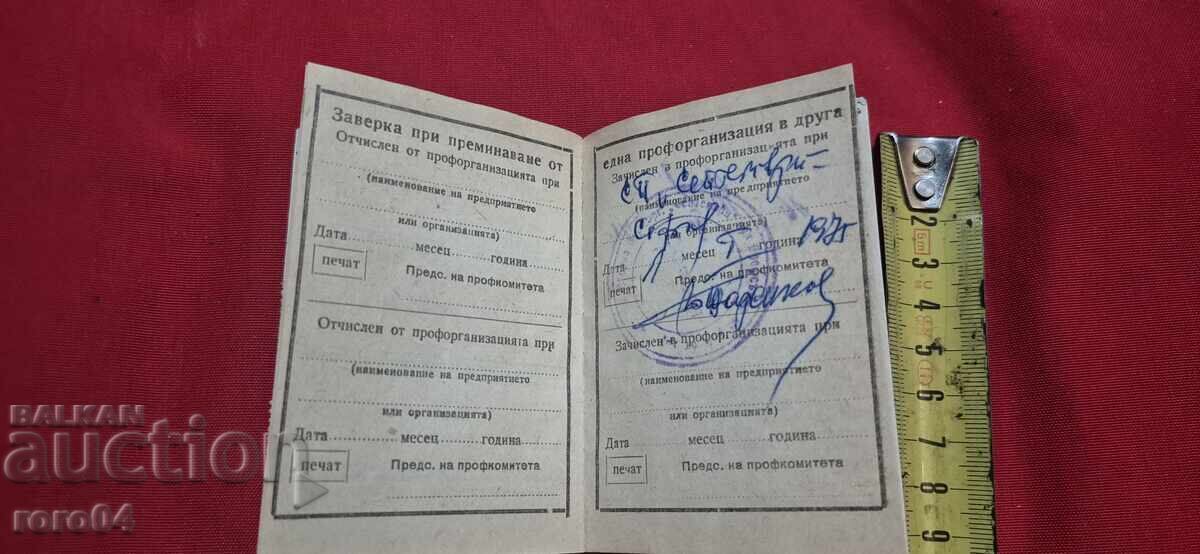 Заверка при преминаване от
Отчислен от профорганизацията при
(наименование на предприятието
или организацията)
Дата месец година
печат Предс. на профкомитета
Отчислен от профорганизацията при
(наименование на предприятието
или организацията)
Дата месец година
печат Предс. на профкомитета
една профорганизация в друга
Зачислен в профорганизацията при
(наименование на предприятието
или организация)
Дата месец година 1975
печат Предс. на профкомитета
Зачислен в профорганизацията при
(наименование на предприятието
или организация)
Дата месец година
печат Предс. на профкомитета
2
3
4
5
6
7
8
9
BALKAN
auction
roro04